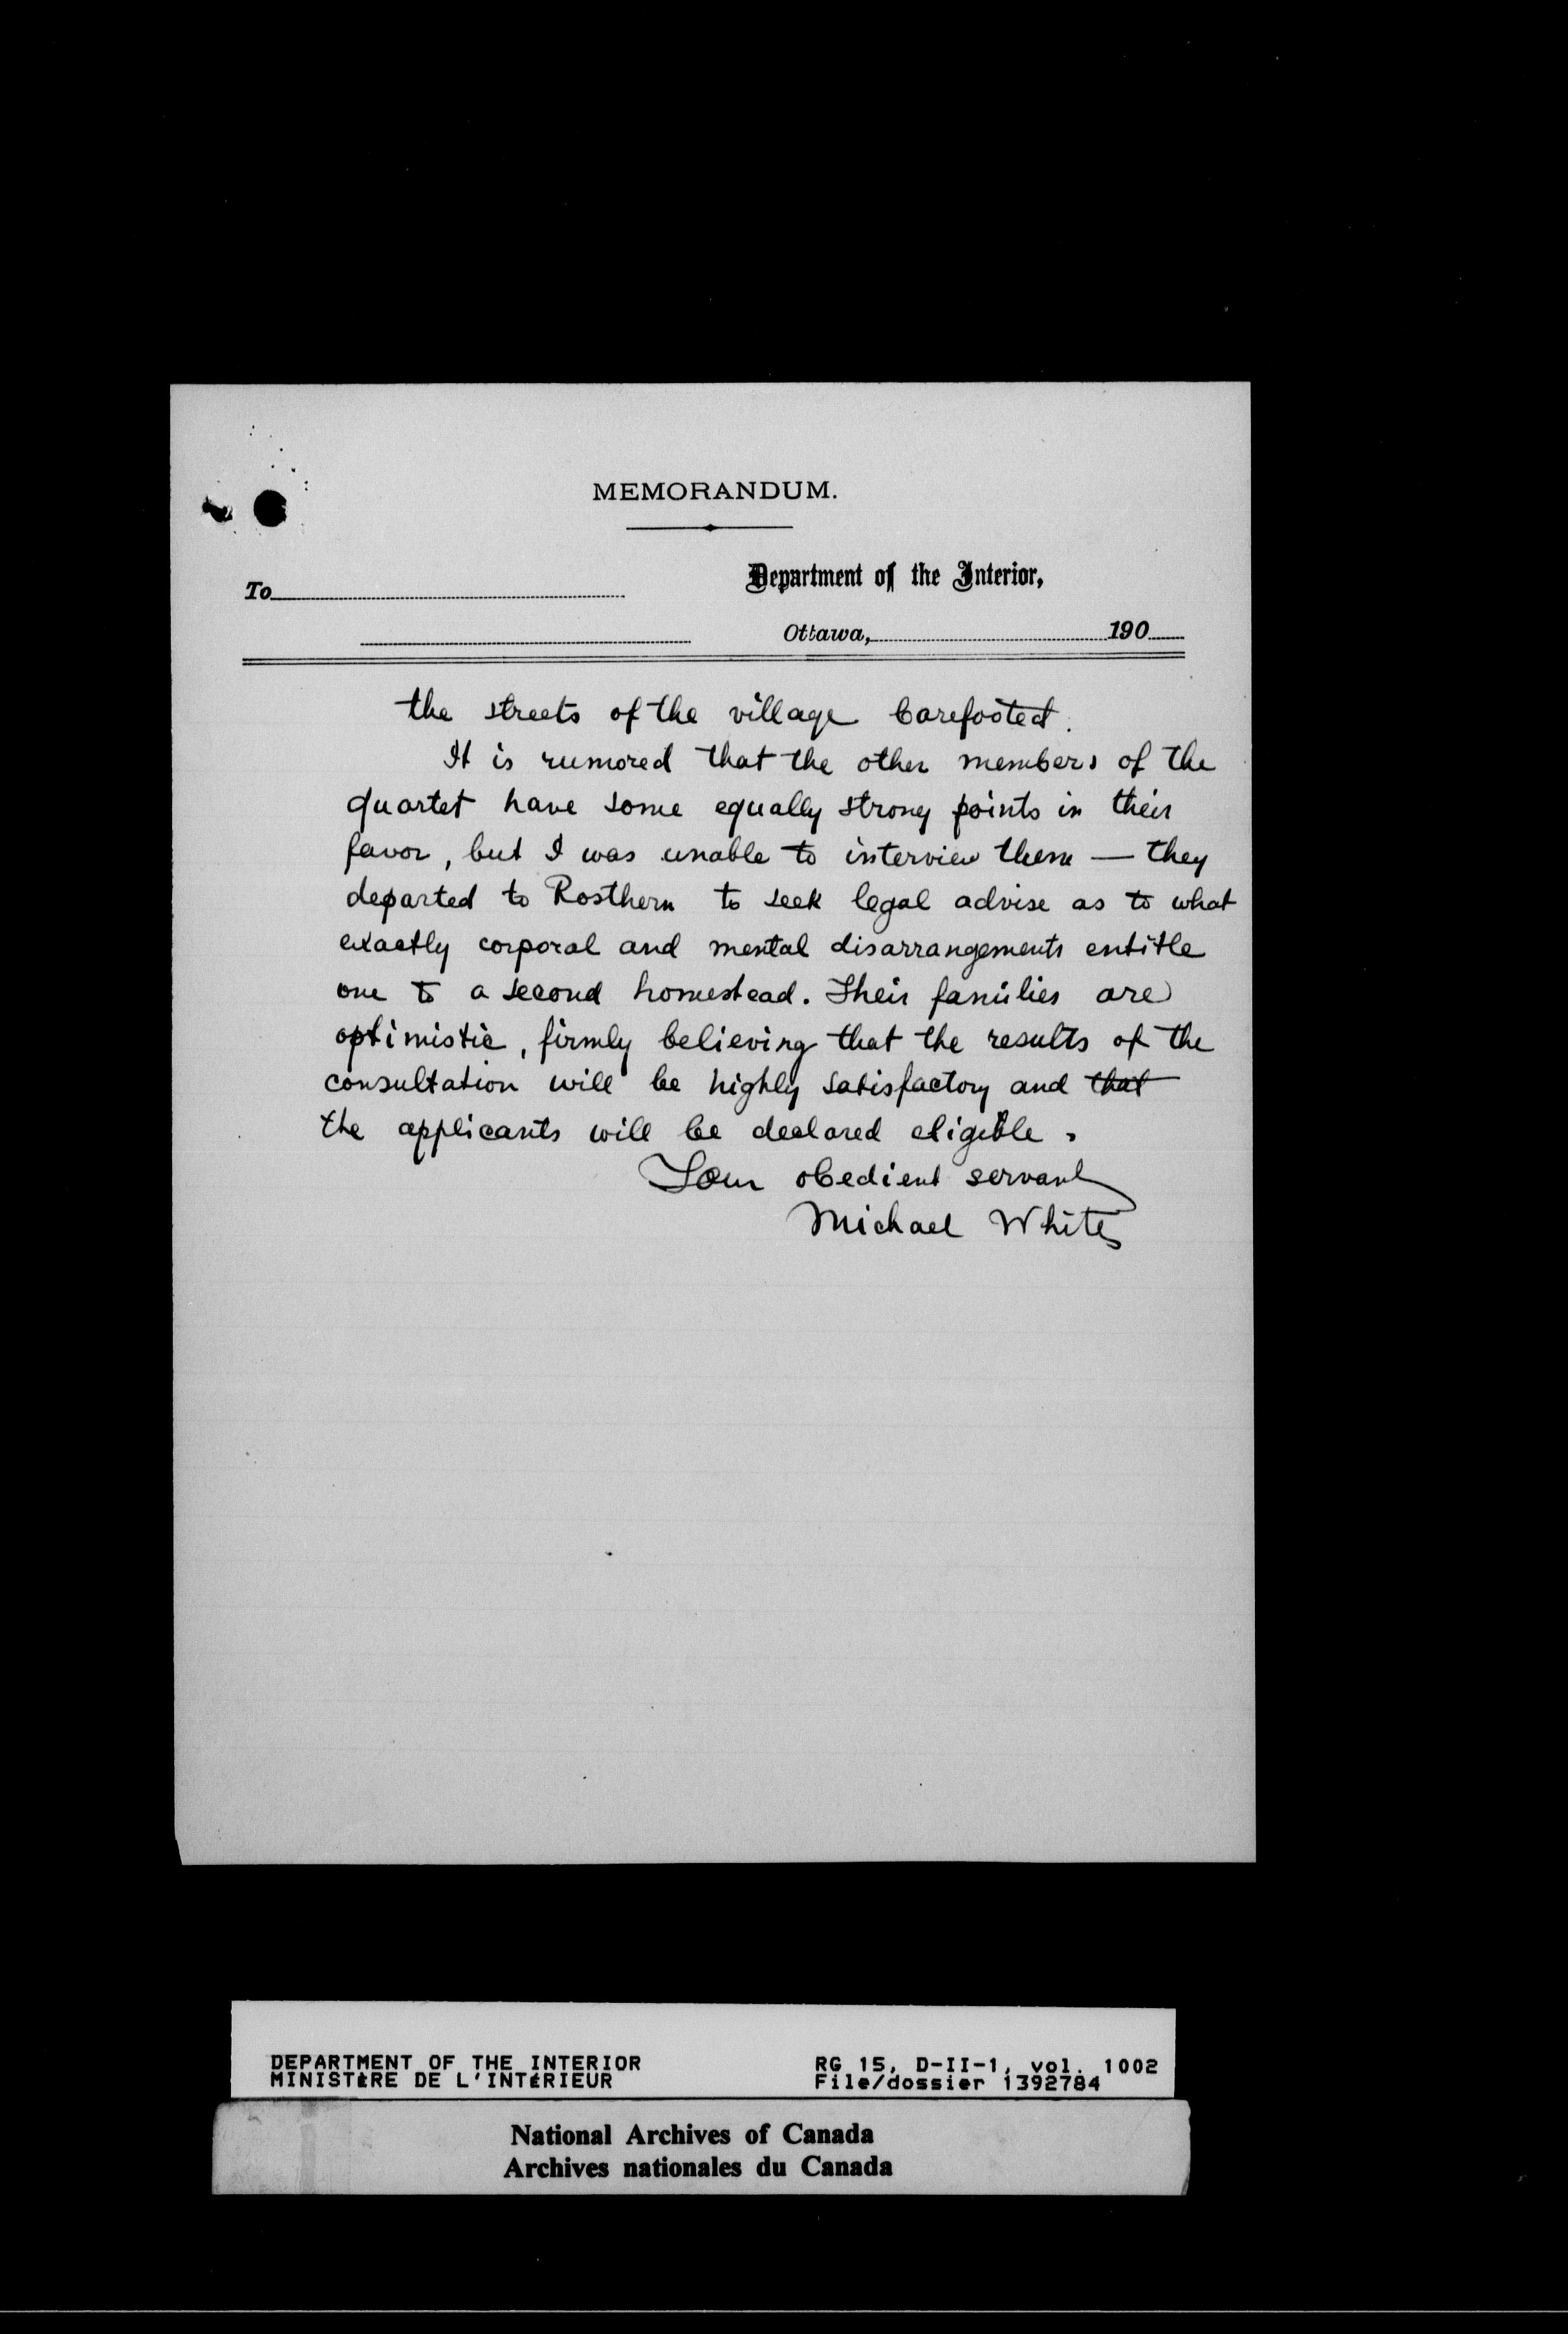 MEMORANDUM.
Department of the Interior,
To
Ottawa, 190
the streets of the village barefooted.
It is rumored that the other members of the
quartet have some equally strong points in their
favor, but I was unable to interview them — they
departed to Rosthern to seek legal advise as to what
exactly corporal and mental disarrangements entitle
one to a second homestead. Their families are
optimistic, firmly believing that the results of the
consultation will be highly satisfactory and that
the applicants will be declared eligible.
Your obedient servant
Michael White
DEPARTMENT OF THE INTERIOR RG 15, D-II-1, vol. 1002
MINISTÈRE DE L'INTÉRIEUR File/dossier 1392784
National Archives of Canada
Archives nationales du Canada